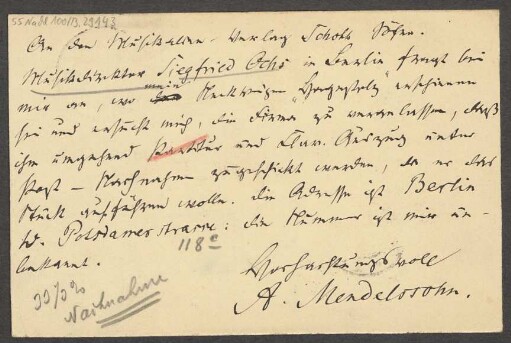 55 Nachl 100/B, 29943
An den Musikalien-Verlag Schott Söhne.
Musikdirektor Siegfried Ochs in Berlin fragt bei
mir an, wo mein Neckreigen „Hagestolz“ erschienen
sei und ersucht mich, die Firma zu veranlassen, daß
ihm umgehend Partitur und Clav. Auszug unter
Post-Nachnahme zugeschickt werden, da er das
Stück aufführen wolle. Die Adresse ist Berlin
W. Potsdamerstrasse: die Nummer ist mir un-
118c
bekannt.
Hochachtungsvoll
A. Mendelssohn.
33⅓%
Nachnahme